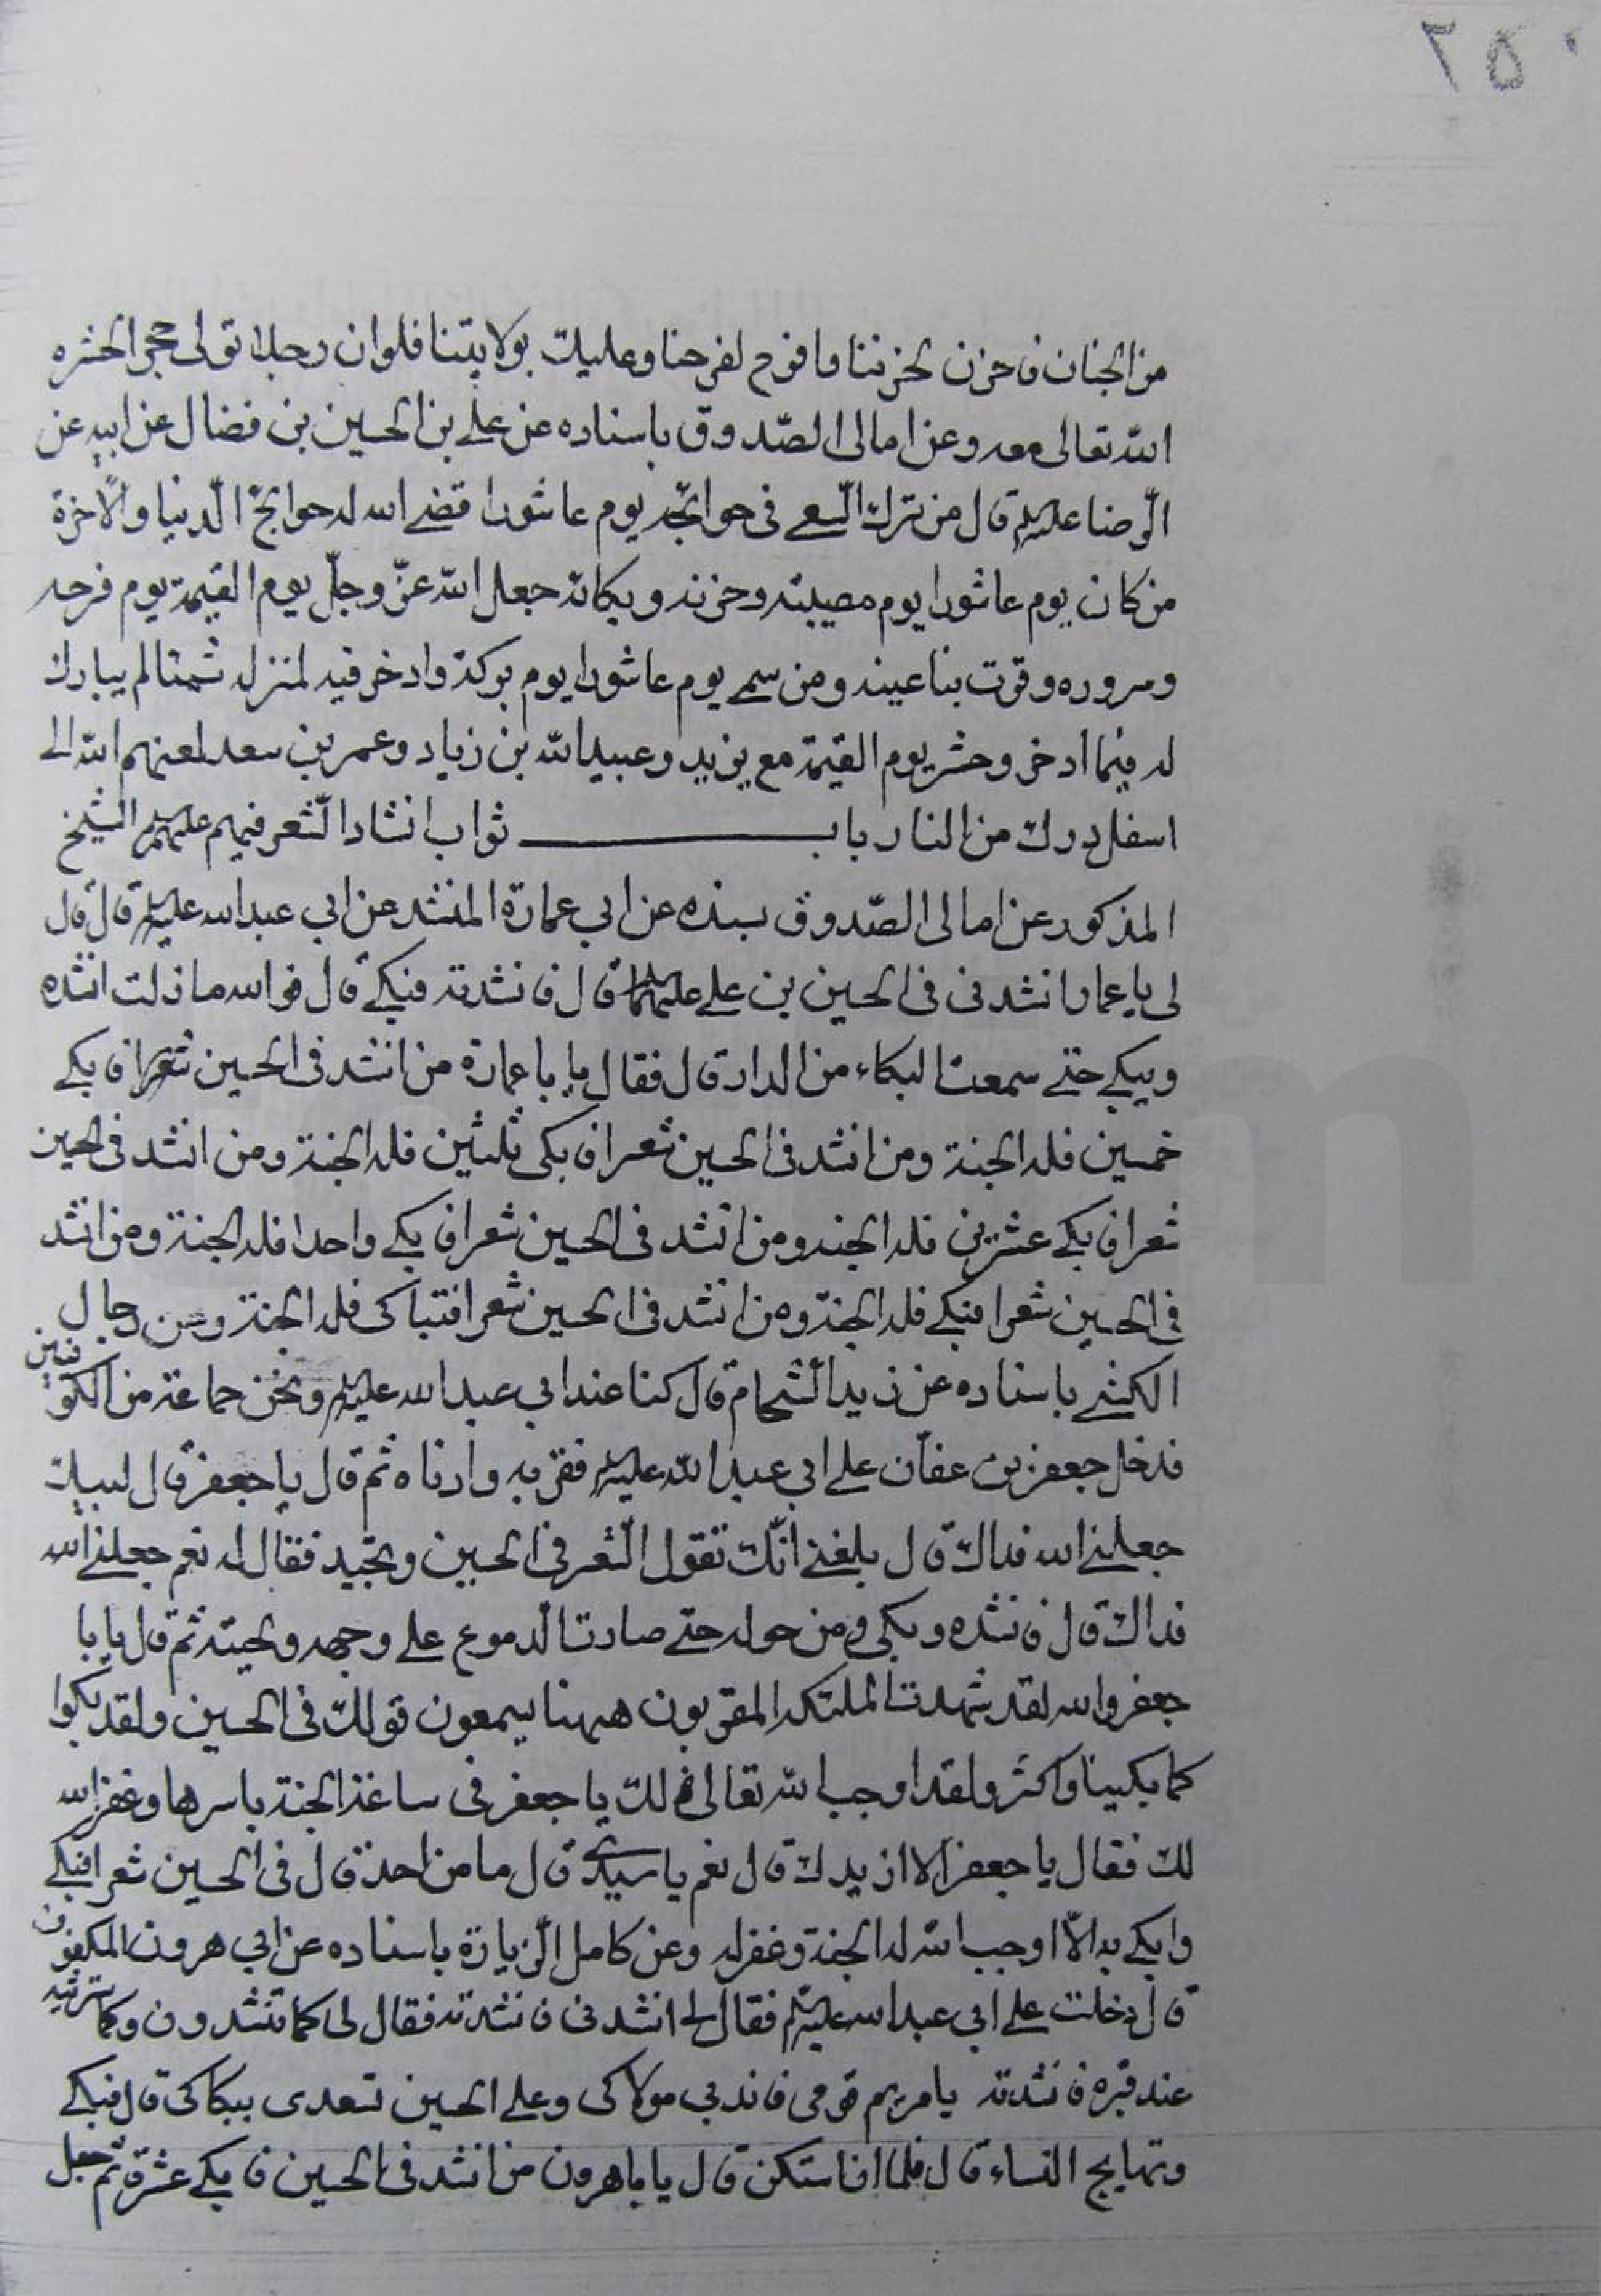 ٢٥٠
من الجنان فاحزن لحزننا وافرح لفرحنا وعليك بولايتنا فلو ان رجلا تولى حجرا لحشره
الله تعالى معه وعن امالى الصّدوق باسناده عن على بن الحسين بن فضال عن ابيه عن
الرّضا عليه السلم قال من ترك السّعى فى حوائجه يوم عاشورا قضى الله له حوايج الدّنيا والاخرة
من كان يوم عاشورا يوم مصيبته وحزنه وبكائه جعل الله عزّ وجلّ يوم القيمة يوم فرحه
وسروره وقرت بنا عينه ومن سمى يوم عاشورا يوم بركة وادخر فيه لمنزله شيئا لم يبارك
له فيما ادخر وحشر يوم القيمة مع يزيد وعبيد الله بن زياد وعمر بن سعد لعنهم الله الى
اسفل درك من النار باب ثواب انشاد الشّعر فيهم عليهم السلم الشيخ
المذكور عن امالى الصّدوق بسنده عن ابي عمارة المنشد عن ابي عبد الله عليه السلم قال قال
لى يا با عمارا نشدنى فى الحسين بن على عليهما السلم قال فانشدته فبكى قال فوالله ما زلت انشده
ويبكى حتى سمعت البكاء من الدار قال فقال يا با عمارة من انشد فى الحسين شعرا فابكى
خمسين فله الجنة ومن انشد فى الحسين شعرا فابكى ثلثين فله الجنة ومن انشد فى الحسين
شعرا فابكى عشرين فله الجنه ومن انشد فى الحسين شعرا فابكى واحدا فله الجنة ومن انشد
فى الحسين شعرا فبكى فله الجنة ومن انشد فى الحسين شعرا فتباكى فله الجنة وعن رجال
الكشى باسناده عن زيد الشّحام قال كنا عند ابي عبد الله عليه السلم ونحن جماعة من الكوفيين
فدخل جعفر بن عفّان على ابي عبد الله عليه السلم فقربه وادناه ثم قال يا جعفر قال لبيك
جعلنى الله فداك قال بلغنى انّك تقول الشّعر فى الحسين وتجيد فقال له نعم جعلنى الله
فداك قال فانشده وبكى ومن حوله حتى صارت الدموع على وجهه ولحيته ثم قال يا با
جعفر والله لقد شهدت الملئكة المقربون ههنا يسمعون قولك فى الحسين ولقد بكوا
كما بكينا واكثر ولقد اوجب الله تعالى لك يا جعفر فى ساعة الجنة باسرها وغفر الله
لك فقال يا جعفر الا ازيدك قال نعم يا سيدى قال ما من احد قال فى الحسين شعرا فبكى
وابكى به الّا اوجب الله له الجنة وغفر له وعن كامل الزّيارة باسناده عن ابي هرون المكفوف
قال دخلت على ابي عبد الله عليه السلم فقال لى انشدنى فانشدته فقال لى كما تنشدون وكما ترثيه
عند قبره فانشدته يا مريم قومى فاندبي مولاكى وعلى الحسين تسعدى ببكاكى قال فبكى
وتهايج النساء قال فلما ان سكتن قال يا با هرون من انشد فى الحسين فابكى عشرة ثم جعل